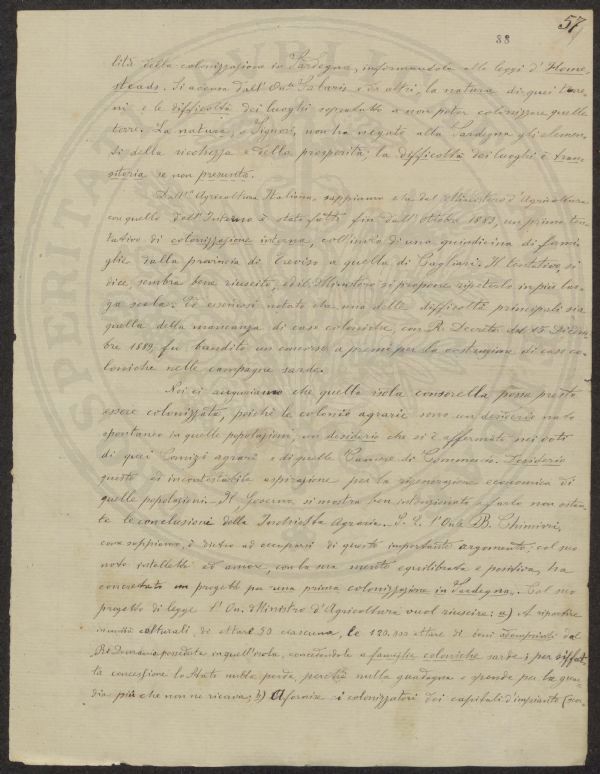 57
88
lità della colonizzazione in Sardegna, informandola alle leggi d'Home-
steads. Si accusa dall'On. Salaris e da altri, la natura di quei terre-
ni e le difficoltà dei luoghi sopratutto a non poter colonizzare quelle
terre. La natura, o Signori, non ha negato alla Sardegna gli elemen-
ti della ricchezza e della prosperità; la difficoltà dei luoghi è tran-
sitoria se non presunta.
Dall'"Agricoltura Italiana" sappiamo che dal Ministero d'Agricoltura
con quello dell'Interno è stato fatto fin dall'ottobre 1889, un primo ten-
tativo di colonizzazione interna, coll'invio di una quindicina di fami-
glie dalla provincia di Treviso a quella di Cagliari. Il tentativo, si
dice, sembra bene riuscito, ed il Ministero si propone ripeterlo in più lar-
ga scala. Ed essendosi notato che una delle difficoltà principali sia
quella della mancanza di case coloniche, con R. Decreto del 15 Dicem-
bre 1889, fu bandito un concorso a premi per la costruzione di case co-
loniche nelle campagne sarde.
Noi ci auguriamo che quella isola consorella possa presto
essere colonizzata, poichè le colonie agrarie sono un desiderio nato
spontaneo in quelle popolazioni, un desiderio che si è affermato nei voti
di quei Comizi agrari e di quelle Camere di Commercio. Desiderio
questo ed incontestabile aspirazione per la rigenerazione economica di
quelle popolazioni. Il Governo si mostra ben intenzionato a farlo non ostan-
te le conclusioni della Inchiesta Agraria. S. E. l'On. B. Chimirri,
come sappiamo, è dietro ad occuparsi di questo importante argomento, col suo
noto intelletto ed amore, con la sua mente equilibrata e positiva, ha
concretato un progetto per una prima colonizzazione in Sardegna. Col suo
progetto di legge l'On. Ministro d'Agricoltura vuol riuscire: a) A ripartire
in unità colturali, di ettari 50 ciascuna, le 120.000 ettare di beni ademprivili dal
R. Demanio possedute in quell'isola, concedendole a famiglie coloniche sarde; per siffat-
ta concessione lo Stato nulla perde, perchè nulla guadagna e spende per la guar-
dia più che non ne ricava; b) A fornire i colonizzatori dei capitali d'impianto (scor-